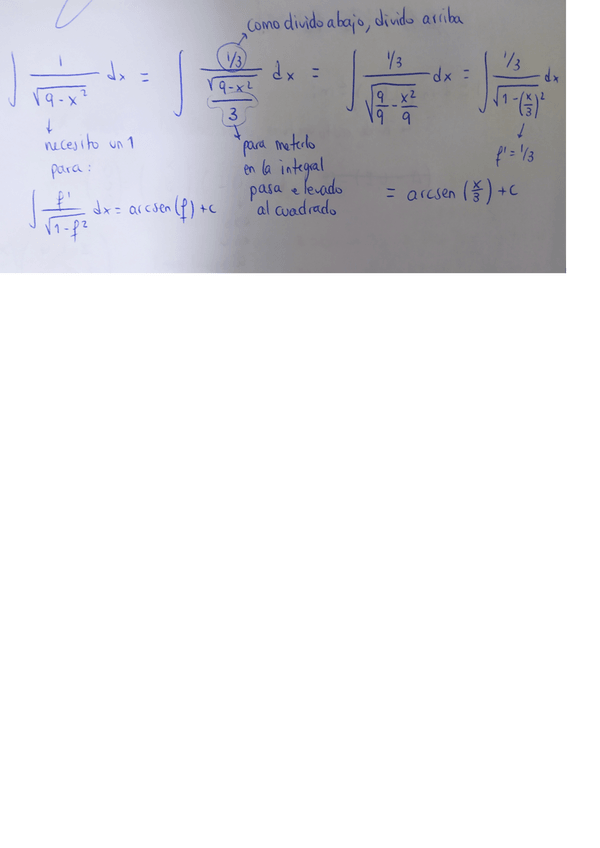 como divido abajo, divido arriba
∫ 1/√(9-x²) dx = ∫ (1/3)/(√(9-x²)/3) dx = ∫ (1/3)/√(9/9 - x²/9) dx = ∫ (1/3)/√(1-(x/3)²) dx
necesito un 1
para:
∫ f'/√(1-f²) dx = arcsen(f)+c
para meterlo
en la integral
pasa elevado
al cuadrado
f' = 1/3
= arcsen(x/3)+c